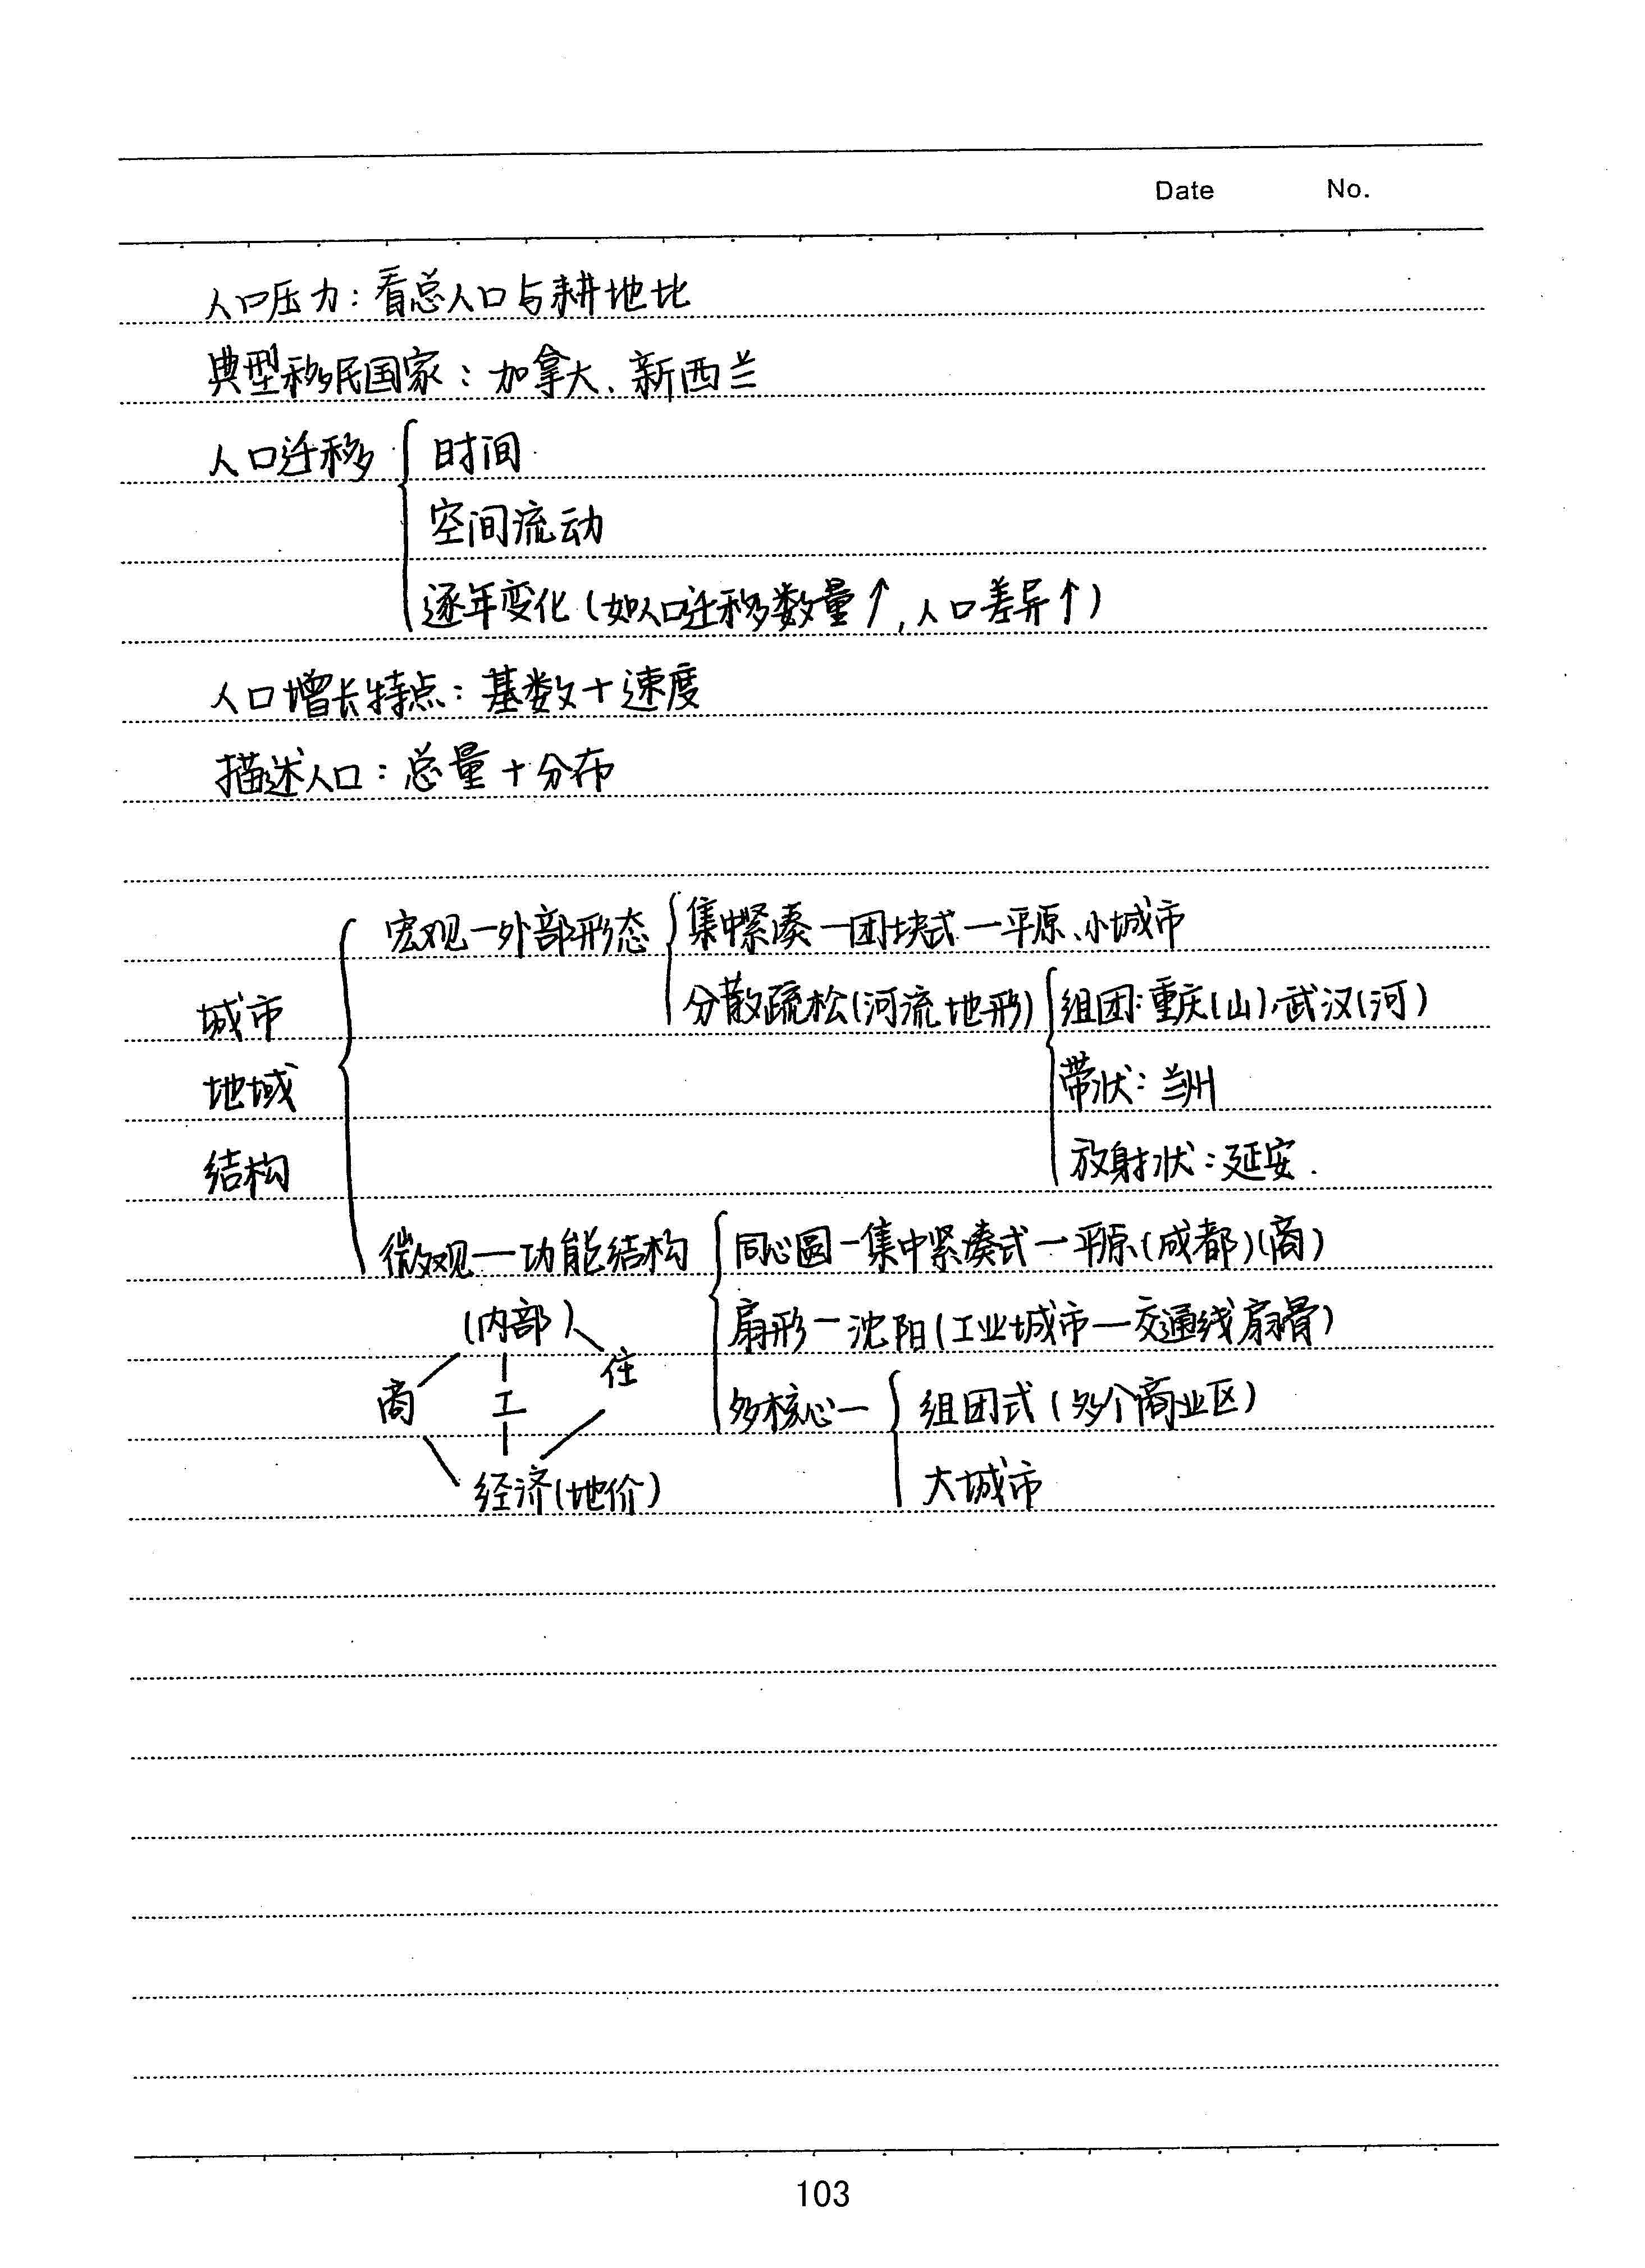 Date No.
人口压力：看总人口与耕地比
典型移民国家：加拿大、新西兰
人口迁移 时间
空间流动
逐年变化（如人口迁移数量↑，人口差异↑）
人口增长特点：基数+速度
描述人口：总量+分布
宏观—外部形态 集中紧凑—团块式—平原、小城市
城市 分散疏松（河流地形） 组团：重庆（山）、武汉（河）
地域 带状：兰州
结构 放射状：延安.
微观—功能结构 同心圆—集中紧凑式—平原（成都）（商）
（内部） 扇形—沈阳（工业城市—交通线扇骨）
住
商 工 多核心— 组团式（多个商业区）
经济（地价） 大城市
103